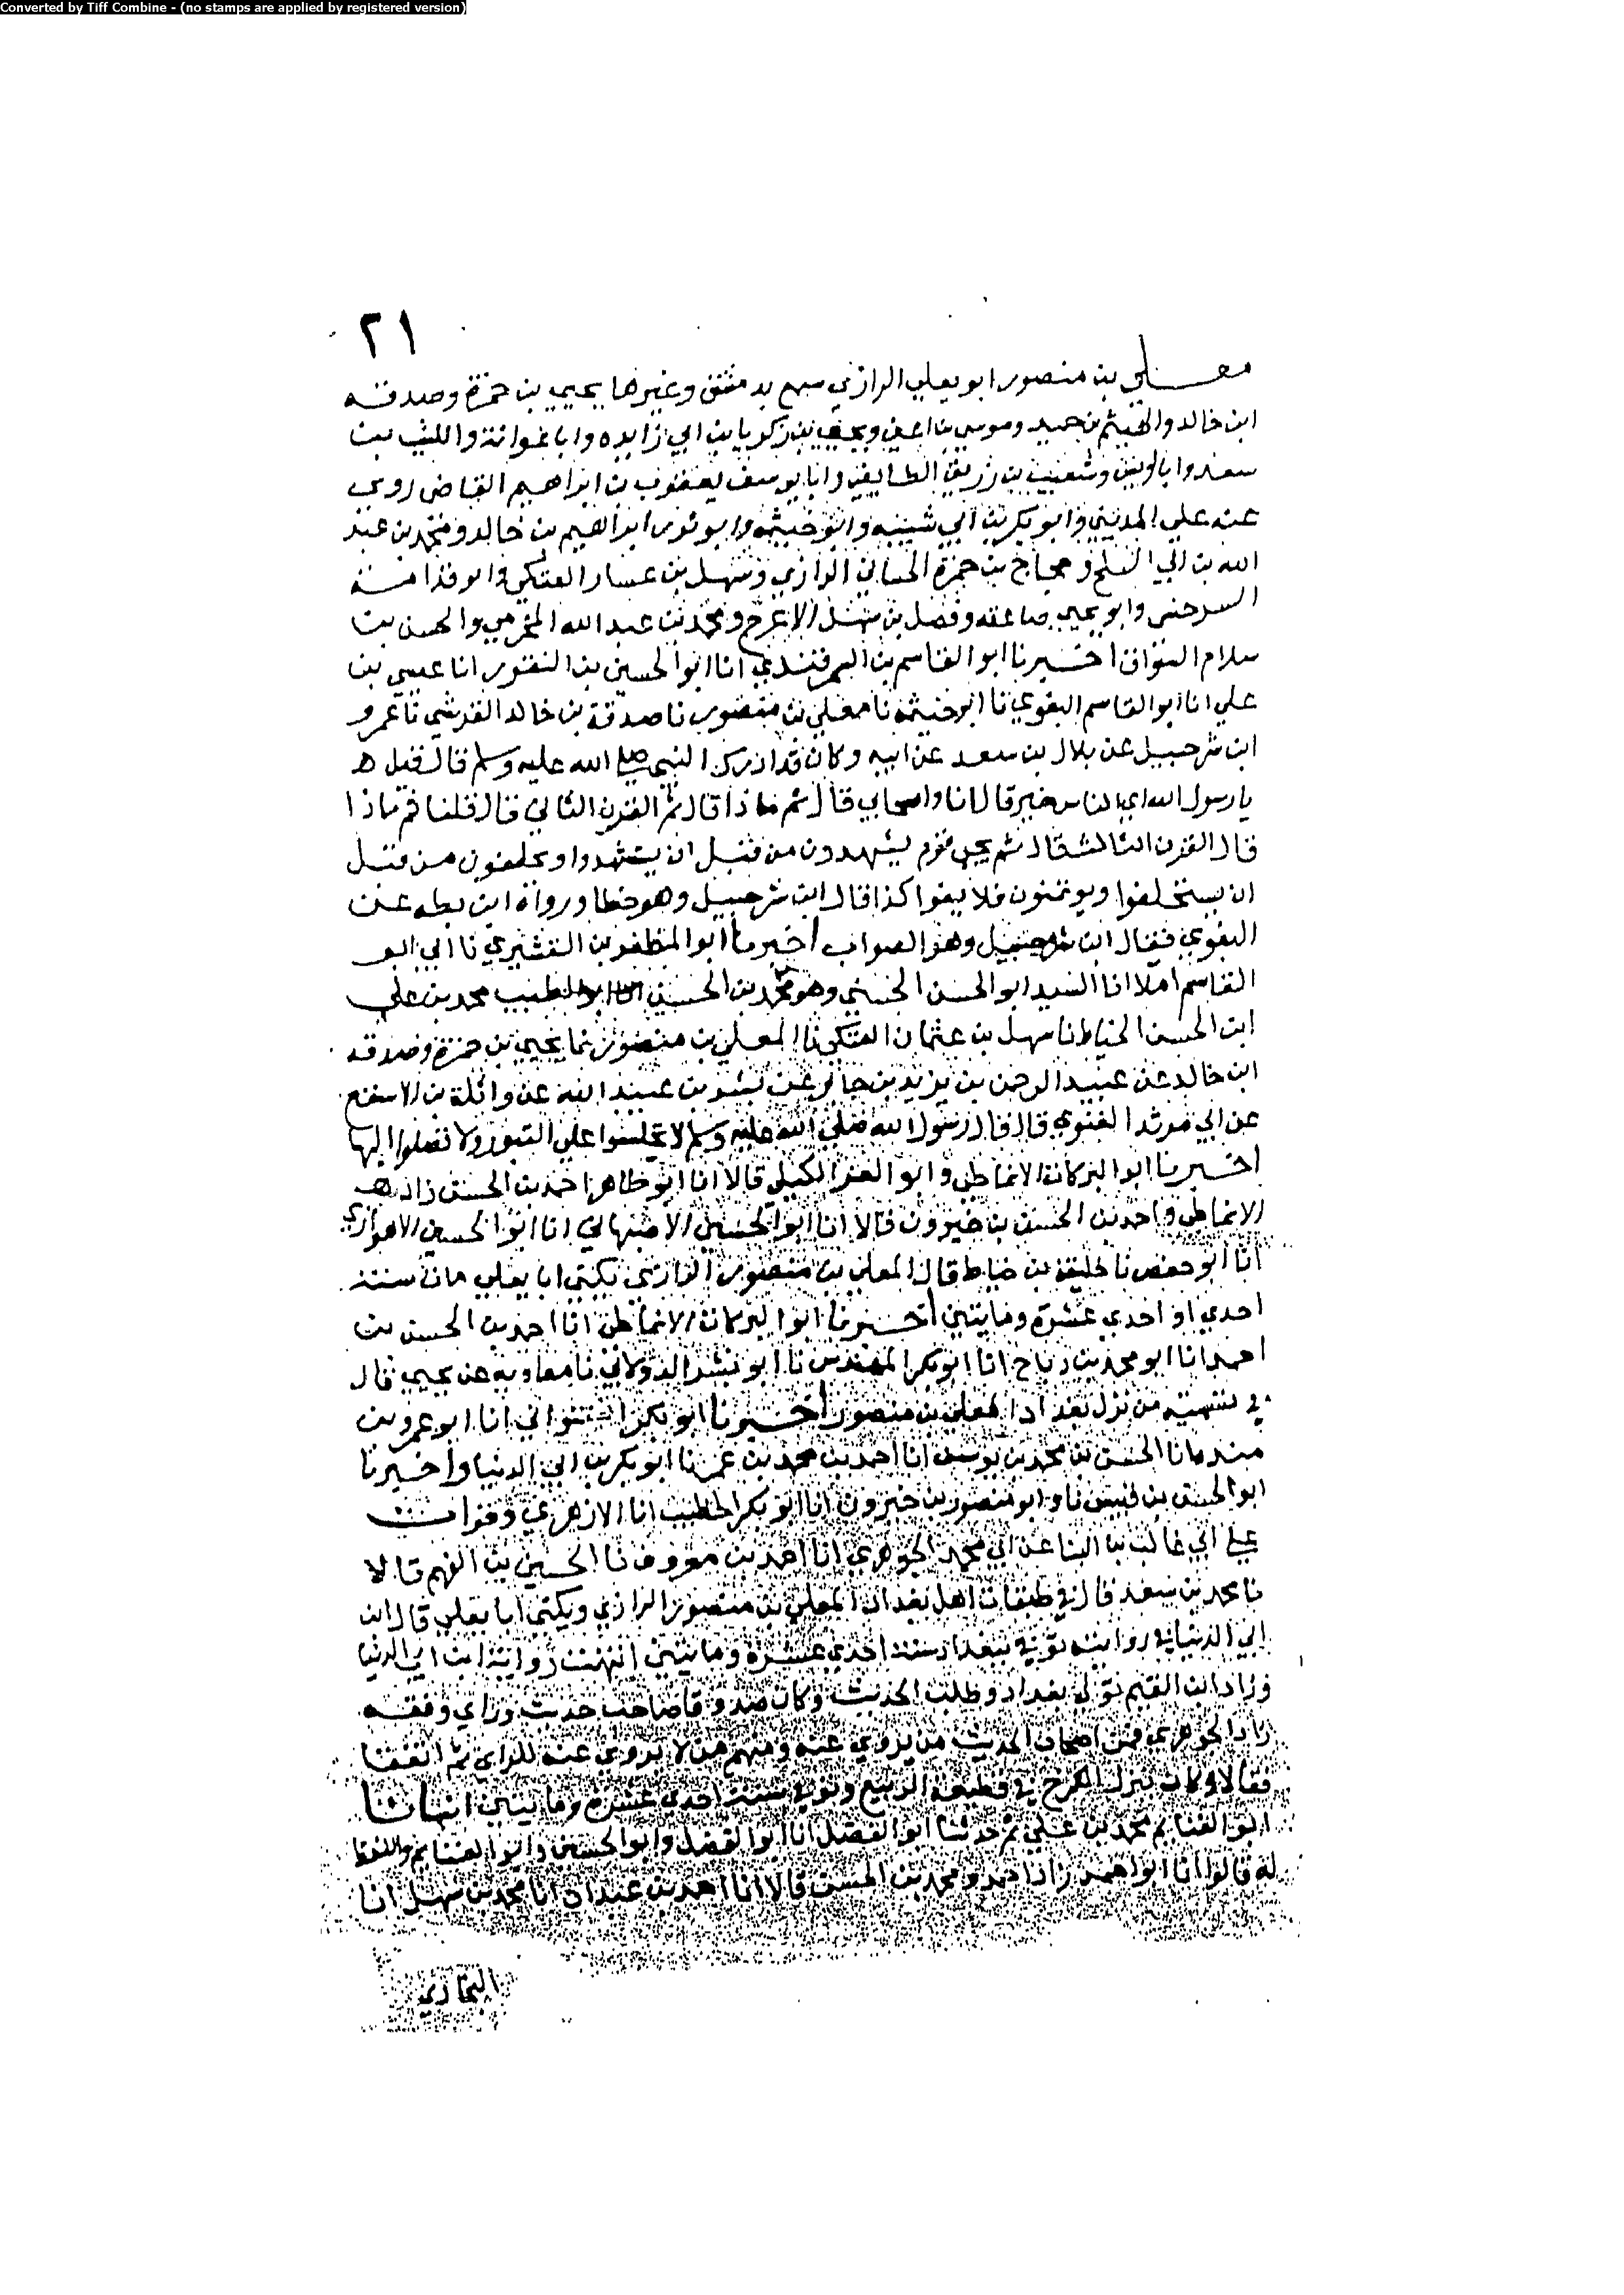 Converted by Tiff Combine - (no stamps are applied by registered version)
٢١
معلى بن منصور ابو يعلى الرازي سمع بدمشق وغيرها يحيى بن حمزة وصدقه
ابن خالد والهيثم بن حميد وموسى بن اعين ويحيى بن زكريا بن ابي زايده وابا عوانة والليث بن
سعد وابا اويس وشعيب بن رزيق الطايفي وابا يوسف يعقوب بن ابراهيم القاضي روى
عنه علي المديني وابو بكر بن ابي شيبه وابو خيثمه وابو ثور ابراهيم بن خالد ومحمد بن عبد
الله بن ابي الثلج وحجاج بن حمزة الخشابي الرازي وسهل بن عسار العتكي وابو قدامة
السرخسي وابو يحيى صاعقه وفضل بن سهل الاعرج ومحمد بن عبد الله المخرمي والحسن بن
سلام السواق اخبرنا ابو القاسم بن السمرقندي انا ابو الحسين بن النقور انا عيسى بن
علي انا ابو القاسم البغوي نا ابو خيثمه نا معلى بن منصور نا صدقة بن خالد القرشي نا عمرو
ابن شرحبيل عن بلال بن سعد عن ابيه وكان قد ادرك النبي صلى الله عليه وسلم قال قيل
يا رسول الله اي الناس خير قال انا واصحابي قال ثم ماذا قال ثم القرن الثاني قال قلنا ثم ماذا
قال القرن الثالث قال ثم يجي قوم يشهدون من قبل ان يستشهدوا ويحلفون من قبل
ان يستحلفوا ويوتمنون فلا يفوا كذا قال ابن شرحبيل وهو خطا ورواه ابن بطه عن
البغوي فقال ابن وهو الصواب اخبرنا ابو المظفر بن القشيري نا ابي ابو
القاسم املا انا السيد ابو الحسن الحسني وهو محمد بن الحسين الطبيب محمد بن علي
ابن الحسن الخياط نا سهل بن عثمان العتكي نا المعلى بن منصور نا يحيى بن حمزة وصدقه
ابن خالد عن عبد الرحمن بن يزيد بن جابر عن بسر بن عبيد الله عن واثلة بن الاسقع
عن ابي مرثد الغنوي قال قال رسول الله صلى الله عليه وسلم لا تجلسوا على القبور ولا تصلوا اليها
اخبرنا ابو البركات الانماطي وابو العز الكيلي قالا انا ابو طاهر احمد بن الحسن زاد
الانماطي واحمد بن الحسن بن خيرون قالا انا ابو الحسين الاصبهاني انا ابو الحسين الاهوازي
انا ابو حفص نا خليفة بن خياط قال المعلى بن منصور الرازي يكنى ابا يعلى مات سنة
احدى او احدى عشرة ومايتين اخبرنا ابو البركات الانماطي انا احمد بن الحسن بن
احمد انا ابو محمد بن رباح انا ابو بكر المهندس نا ابو بشر الدولابي نا معاويه عن يحيى قال
في تسميه من نزل بغداد المعلى بن منصور اخبرنا ابو بكر انا ابو عمرو بن
منده انا الحسن بن محمد بن يوسف انا احمد بن محمد بن عمر نا ابو بكر بن ابي الدنيا واخبرنا
ابو الحسن بن قبيس نا وابو منصور بن خيرون انا ابو بكر الخطيب انا الازهري وقرات
على ابي غالب بن البنا عن ابي محمد الجوهري انا احمد بن معروف نا الحسين بن الفهم قالا
نا محمد بن سعد قال في طبقات اهل بغداد المعلى بن منصور الرازي ويكنى ابا يعلى قال ابن
ابي الدنيا في روايته توفي ببغداد سنة احدى عشرة ومايتين انتهت رواية ابن ابي الدنيا
وزاد ابن الفهم نزل بغداد وطلب الحديث وكان صدوقا صاحب حديث وراي وفقه
زاد الجوهري فمن اصحاب الحديث من يروي عنه ومنهم من لا يروي عنه للراي ثم اتفقا
فقالا وكان ينزل الكرخ في قطيعة الربيع وتوفي سنة احدى عشره ومايتين انبانا
ابو الغنايم محمد بن علي ثم حدثنا ابو الفضل انا ابو الفضل وابو الحسين وابو الغنايم واللفظ
له قالوا انا ابو احمد زاد احمد ومحمد بن الحسن قالا انا احمد بن عبدان انا محمد بن سهل انا
البخاري